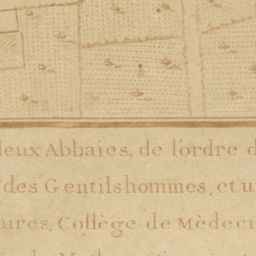 deux Abbaies, de l'ordre d
des Gentilshommes, et u
ures, Collège de Mèdeci